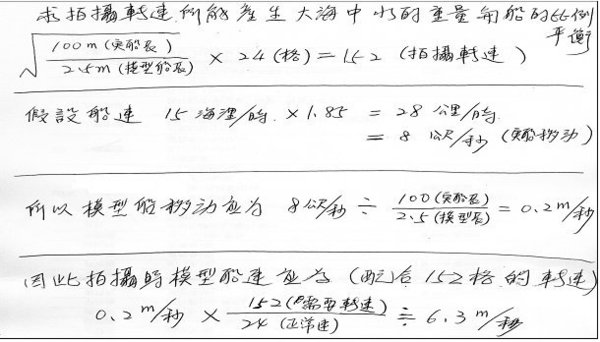 求拍攝轉速所能產生大海中水的重量與船的比例
平衡
√ 100m(實船長) / 2.5m(模型船長) × 24(格) = 152 (拍攝轉速)
假設船速 15 海浬/時 × 1.85 = 28 公里/時
= 8 公尺/秒 (實船移動)
所以模型船移動應為 8公尺/秒 ÷ 100(實船長) / 2.5(模型長) = 0.2 m/秒
因此拍攝時模型船速應為 (配合 152格的轉速)
0.2 m/秒 × 152(所需要轉速) / 24 (正常速) ≒ 6.3 m/秒